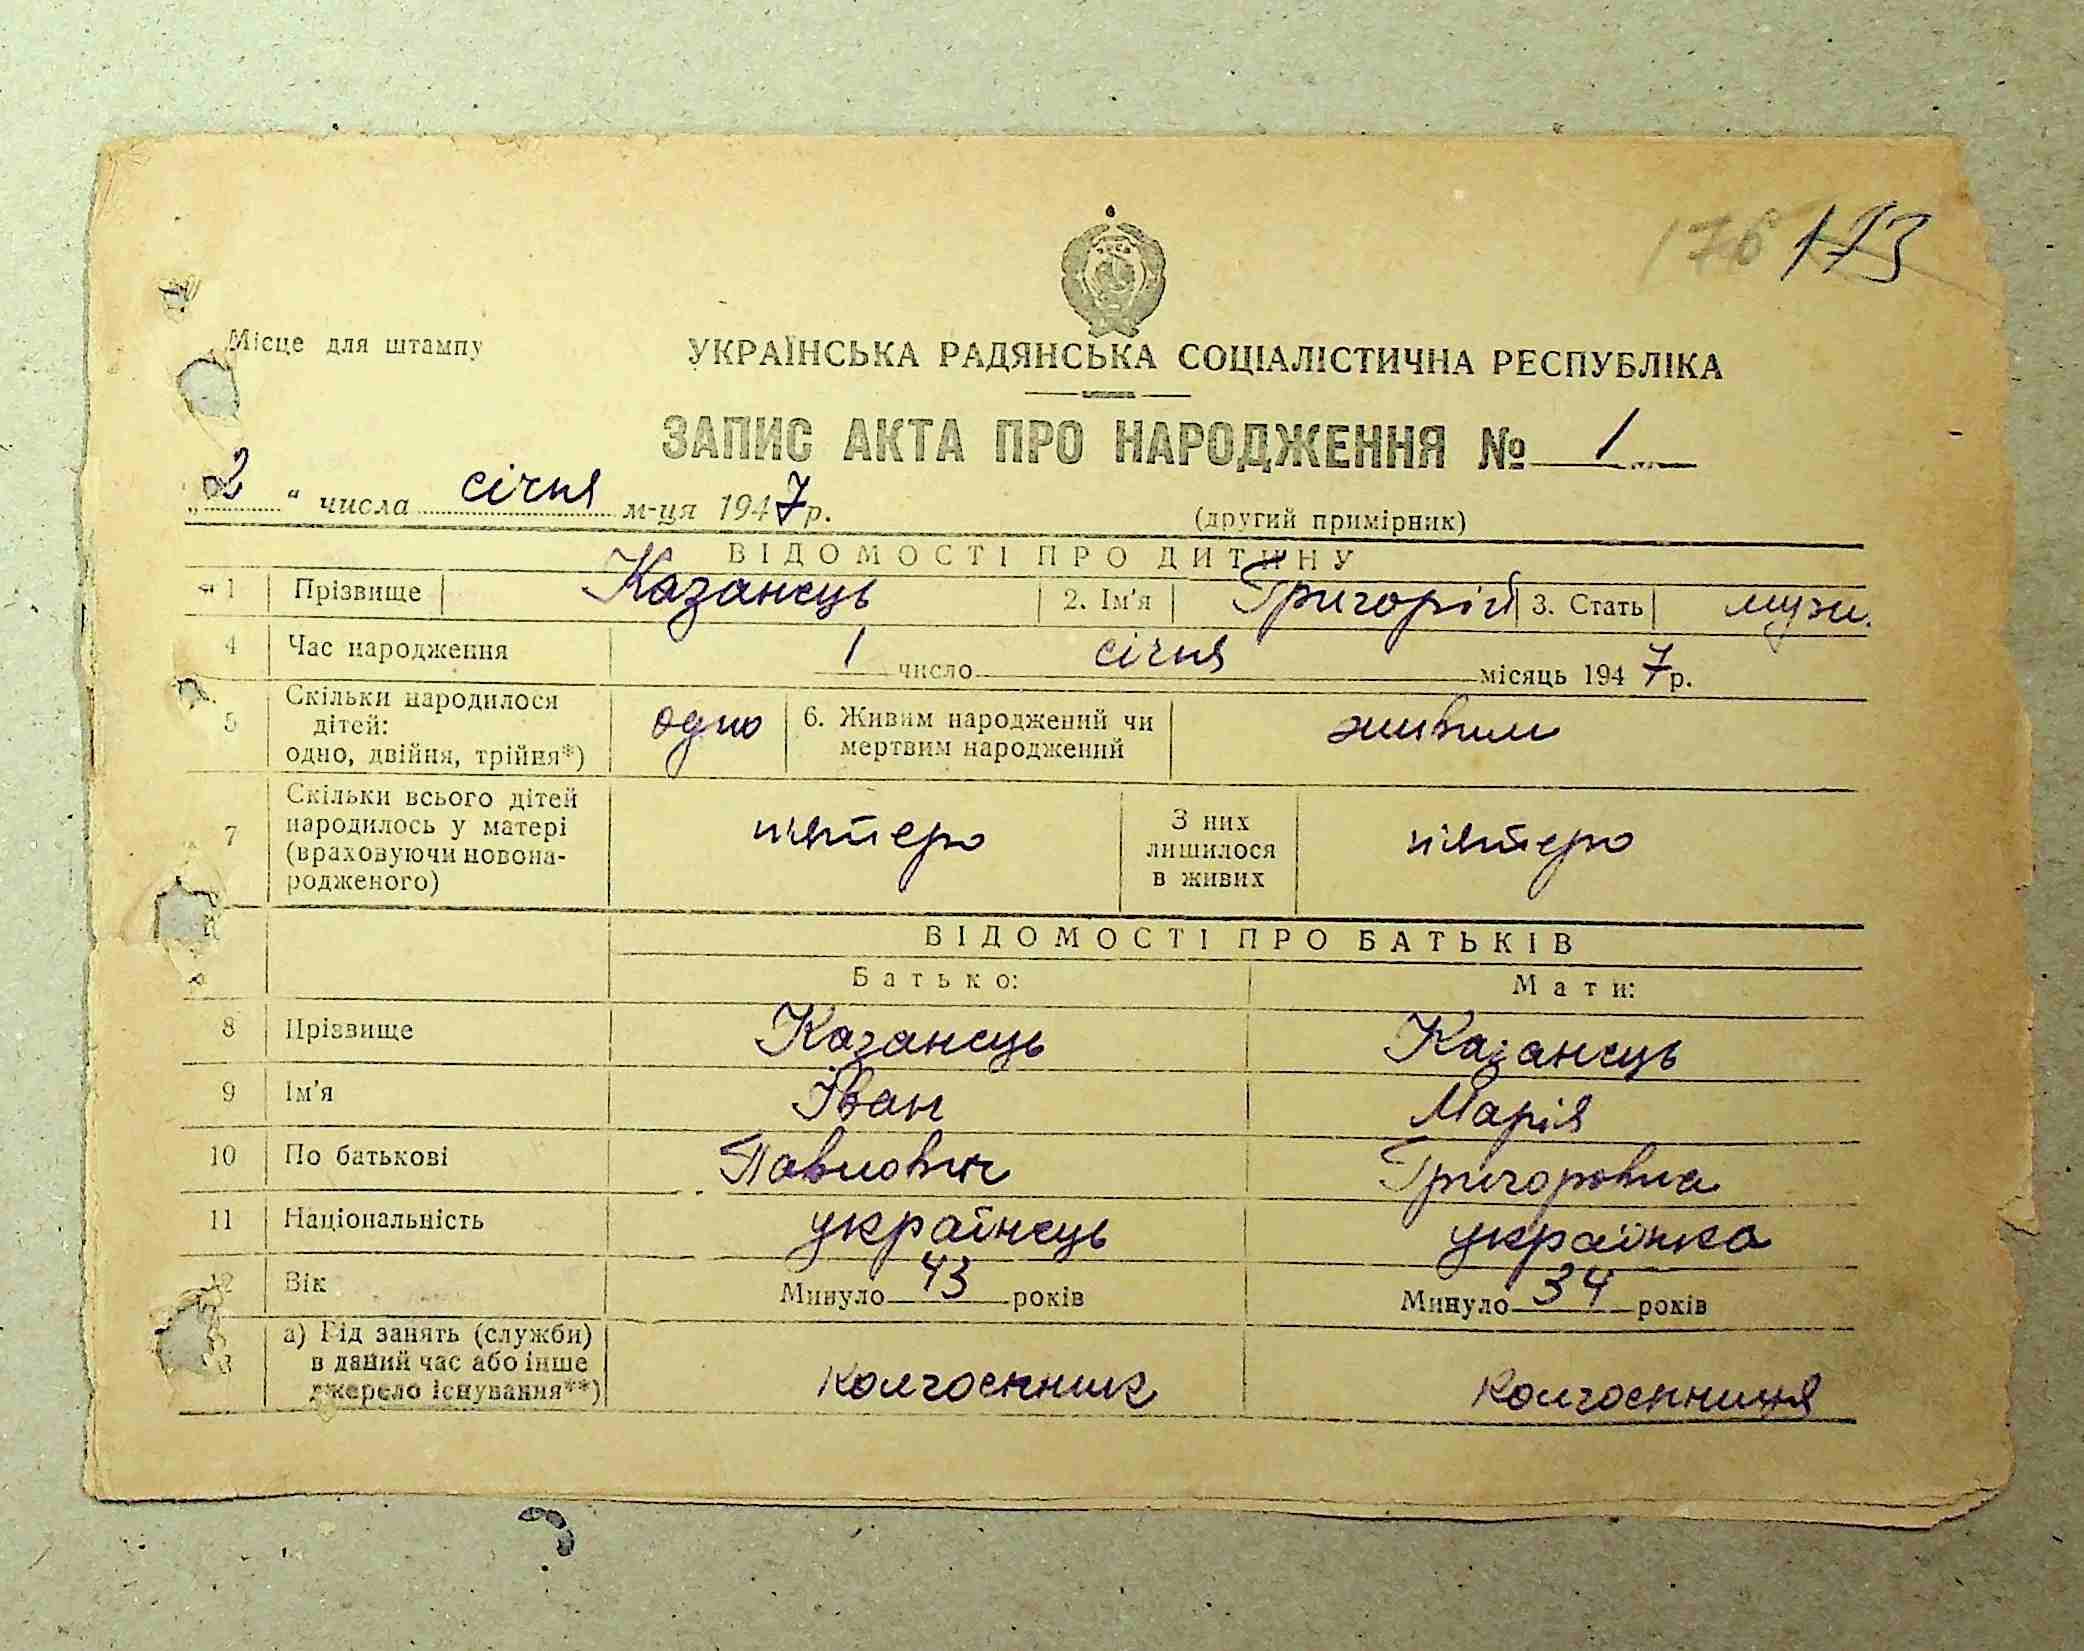 176 173
Місце для штампу
УКРАЇНСЬКА РАДЯНСЬКА СОЦІАЛІСТИЧНА РЕСПУБЛІКА
ЗАПИС АКТА ПРО НАРОДЖЕННЯ № 1
„2“ числа січня м-ця 1947р.
(другий примірник)
ВІДОМОСТІ ПРО ДИТИНУ
1 Прізвище Казанець 2. Ім'я Григорій 3. Стать муж.
4 Час народження 1 число січня місяць 1947р.
5 Скільки народилося дітей: одно, двійня, трійня*) одно 6. Живим народжений чи мертвим народжений живим
7 Скільки всього дітей народилось у матері (враховуючи новонародженого) п'ятеро З них лишилося в живих п'ятеро
ВІДОМОСТІ ПРО БАТЬКІВ
Батько: Мати:
8 Прізвище Казанець Казанець
9 Ім'я Іван Марія
10 По батькові Павлович Григоровна
11 Національність українець українка
12 Вік Минуло 43 років Минуло 34 років
13 а) Рід занять (служби) в даний час або інше джерело існування**) колгоспник колгоспниця